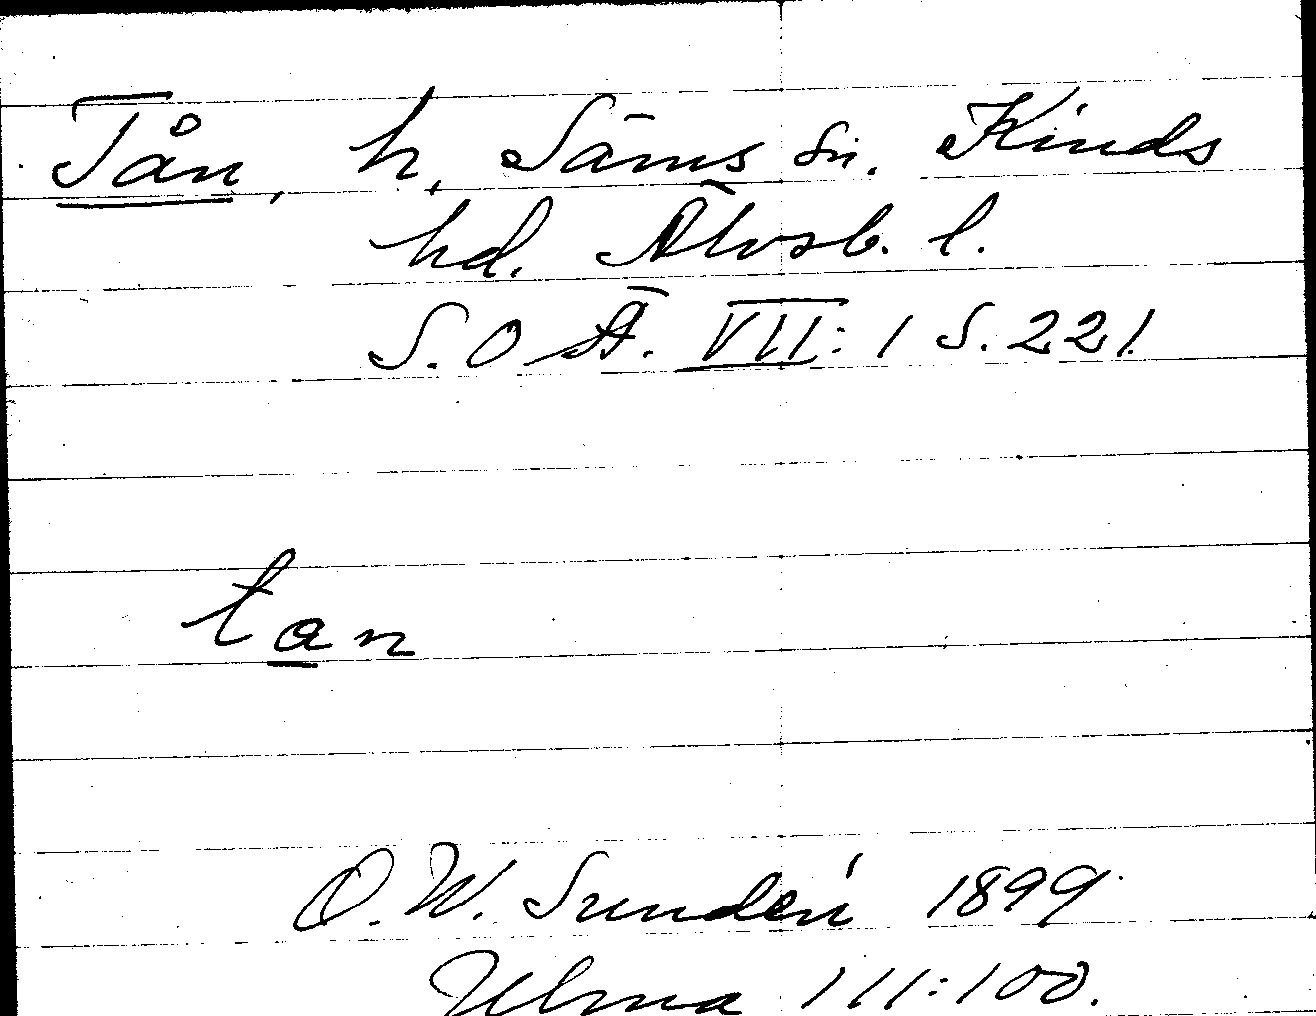 Tån, h, Säms sn. Kinds
hd. Älvsb. l.
S. O Ä. VII: 1 S. 221.
tan
O. W. Sundén 1899
Ulma 111:100.